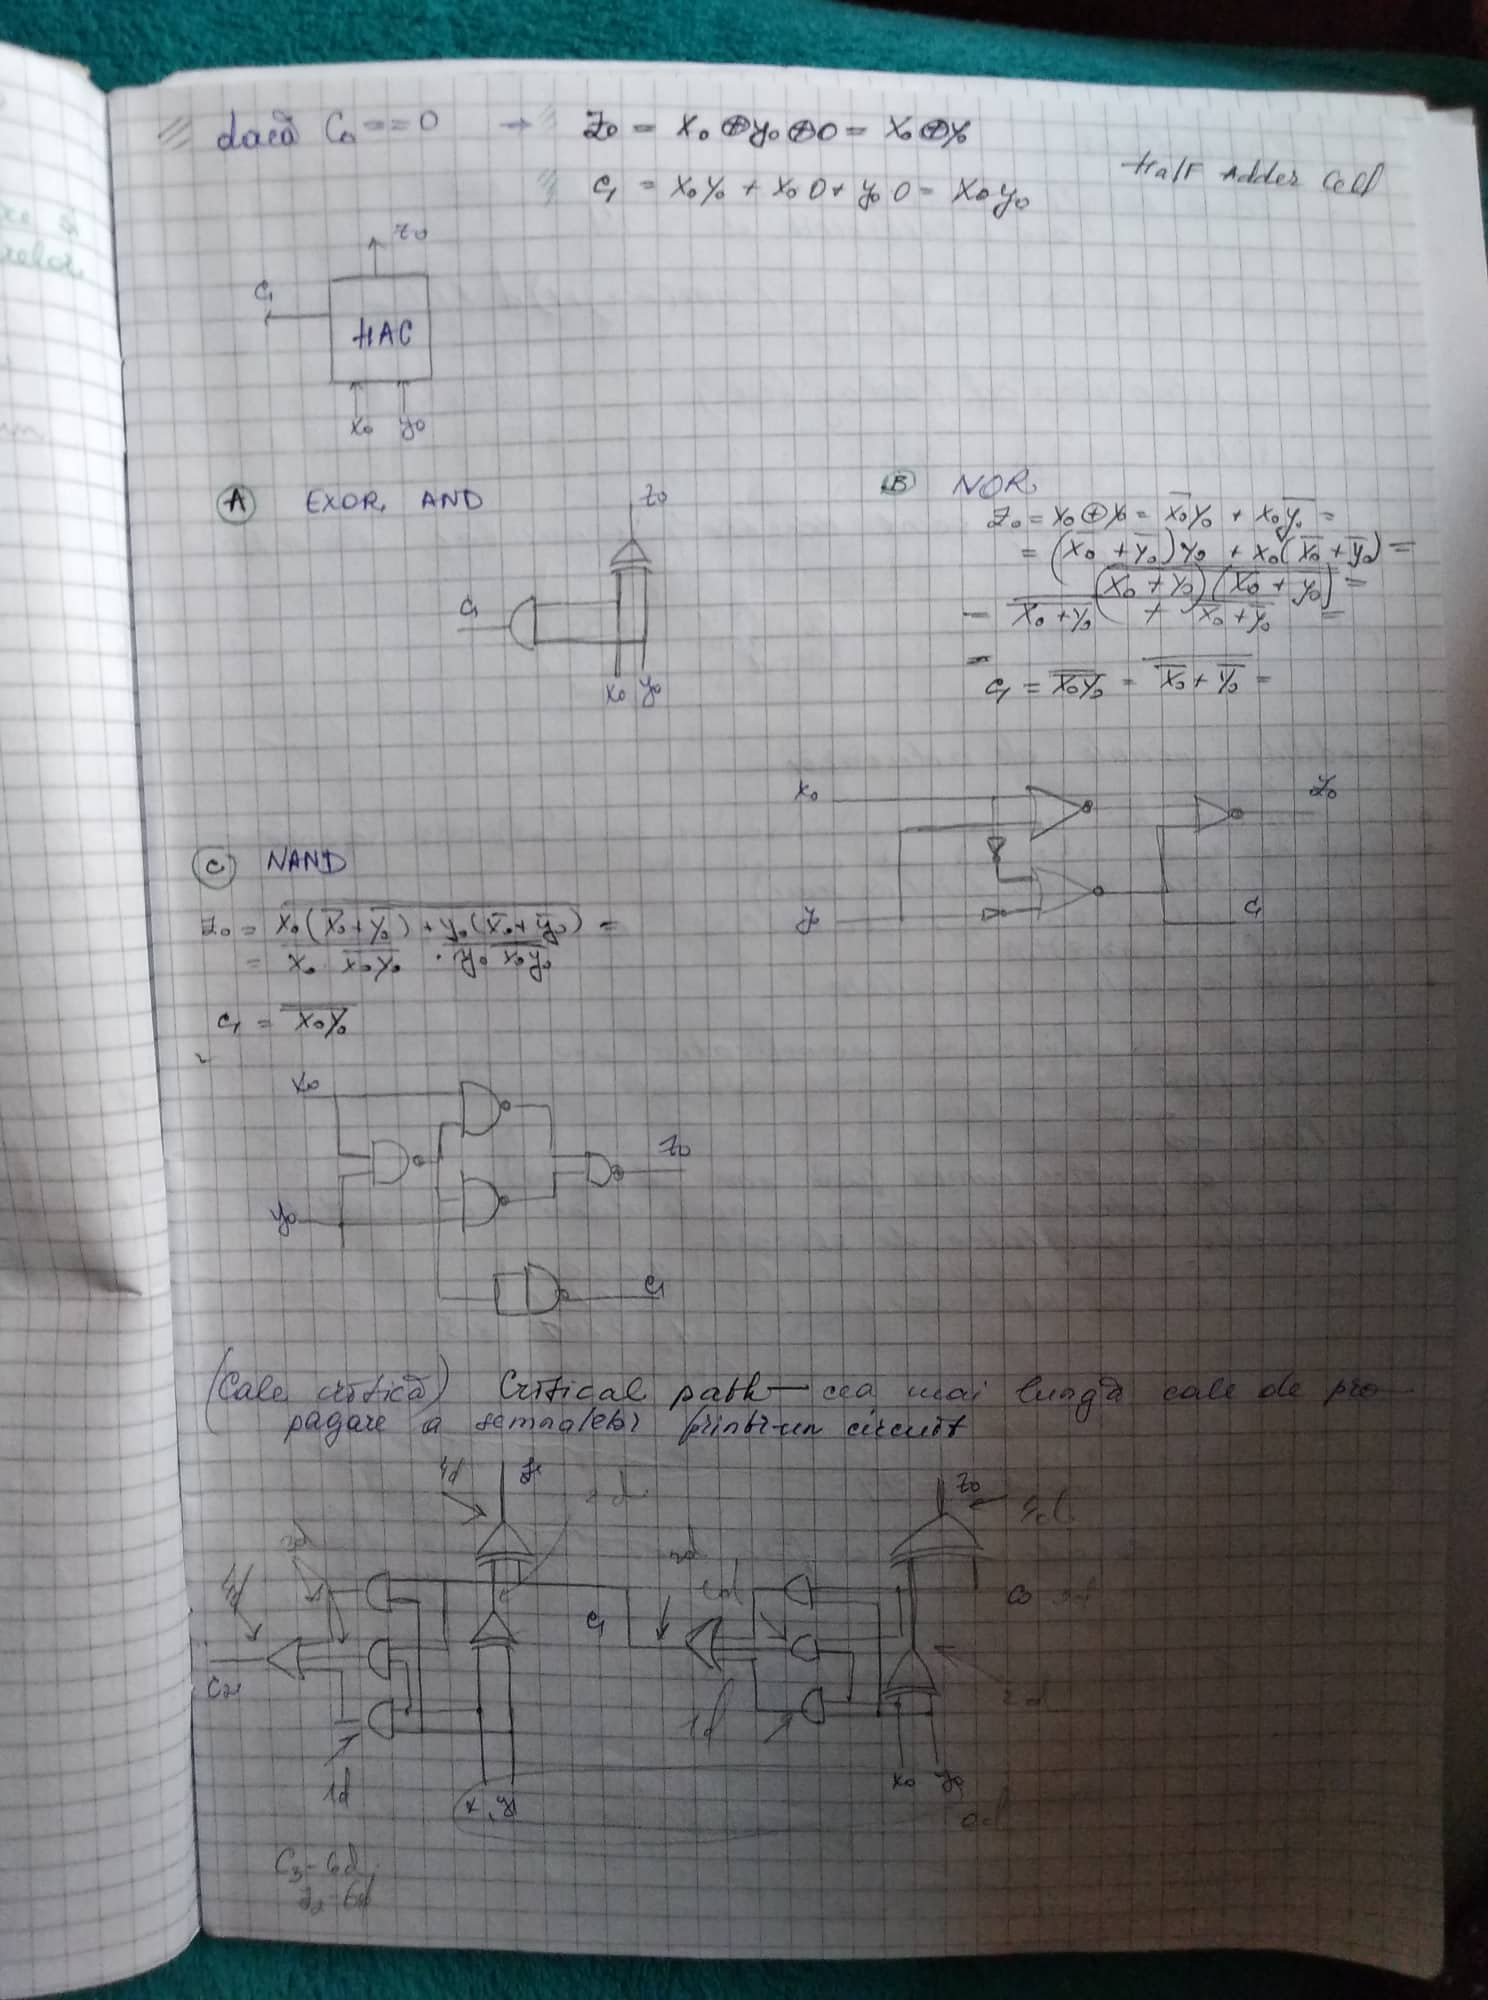 dacă C₀ == 0 → Z₀ = X₀ ⊕ y₀ ⊕ 0 = X₀ ⊕ y₀
C₁ = X₀y₀ + X₀0 + y₀0 = X₀y₀
Half Adder Cell
Z₀
C₁
HAC
X₀ y₀
A EXOR, AND
Z₀
C₁
X₀ y₀
B NOR
Z₀ = X₀ ⊕ y₀ = X̅₀y₀ + X₀y̅₀ =
= (X̅₀ + y̅₀)y₀ + X₀(X̅₀ + y̅₀) =
(X₀ + y₀)(X̅₀ + y̅₀) =
= X₀ + y₀ + X̅₀ + y̅₀ =
=
C₁ = X₀y₀ = X̅₀ + y̅₀ =
X₀
Z₀
y₀
C₁
C NAND
Z₀ = X₀(X̅₀ + y̅₀) + y₀(X̅₀ + y̅₀) =
= X₀ X₀y₀ · y₀ X₀y₀
C₁ = X₀y₀
X₀
Z₀
y₀
C₁
(Cale critică) Critical path — cea mai lungă cale de pro-
pagare a semnalelor printr-un circuit
4d
Z₀
C₁
C₀
2d
C₂
1d
1d
X₀ y₀
X₁ y₁
0d
C₃ - 6d
6d